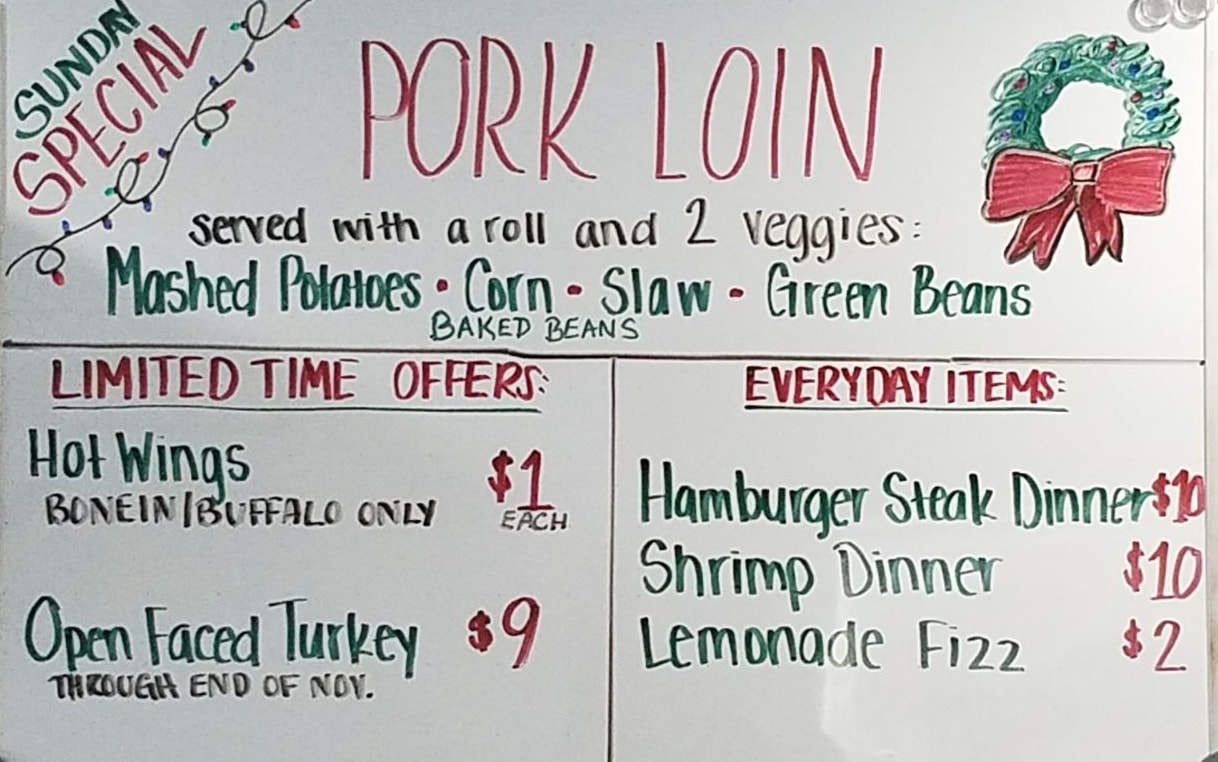 SUNDAY
SPECIAL
PORK LOIN
served with a roll and 2 veggies:
Mashed Potatoes • Corn • Slaw • Green Beans
BAKED BEANS
LIMITED TIME OFFERS:
Hot Wings $1
BONEIN/BUFFALO ONLY EACH
Open Faced Turkey $9
THROUGH END OF NOV.
EVERYDAY ITEMS:
Hamburger Steak Dinner $10
Shrimp Dinner $10
Lemonade Fizz $2